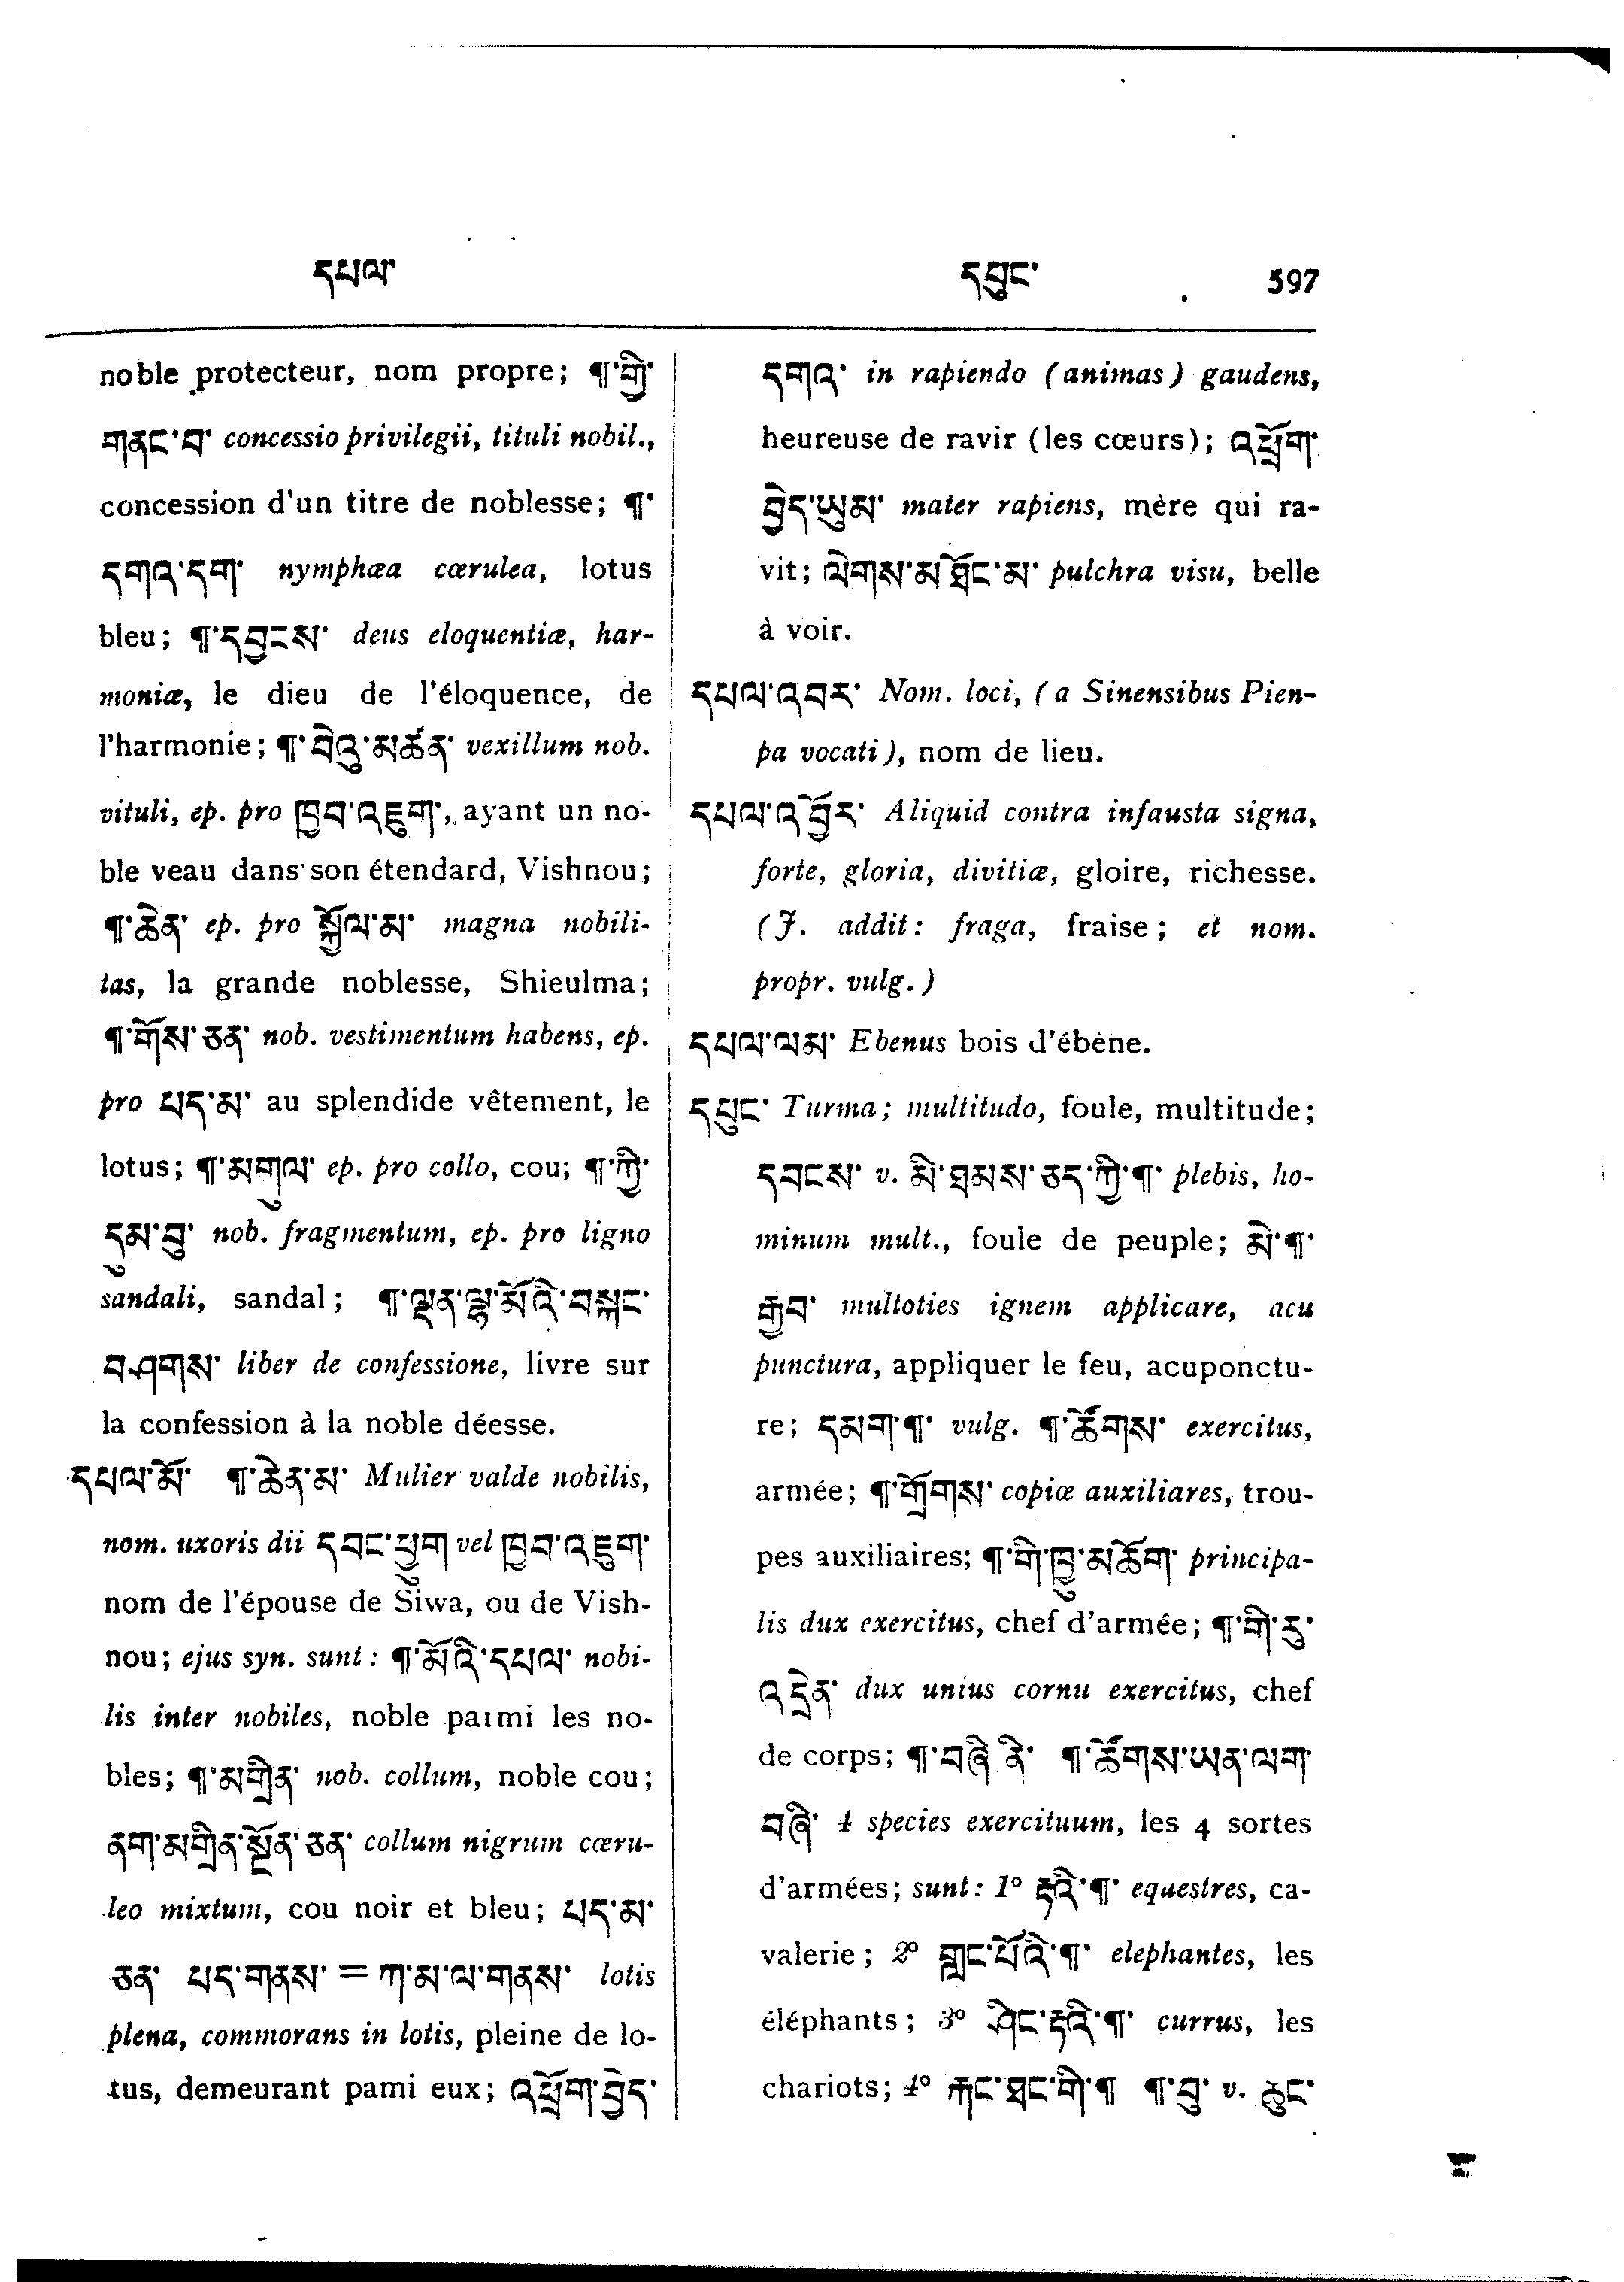 དཔལ་
དཔུང་ 597
noble protecteur, nom propre; ¶་གྱི་
གནང་བ་ concessio privilegii, tituli nobil.,
concession d'un titre de noblesse; ¶་
དགའ་དག་ nymphæa cœrulea, lotus
bleu; ¶་དབྱངས་ deus eloquentiæ, har-
moniæ, le dieu de l'éloquence, de
l'harmonie; ¶་བེའུ་མཚན་ vexillum nob.
vituli, ep. pro ཁྱབ་འཇུག་, ayant un no-
ble veau dans son étendard, Vishnou;
¶་ཆེན་ ep. pro སྐྱོལ་མ་ magna nobili-
tas, la grande noblesse, Shieulma;
¶་གོས་ཅན་ nob. vestimentum habens, ep.
pro པད་མ་ au splendide vêtement, le
lotus; ¶་མགུལ་ ep. pro collo, cou; ¶་ཀྱི་
དུམ་བུ་ nob. fragmentum, ep. pro ligno
sandali, sandal; ¶་ལྡན་ལྷ་མོའི་བསྐང་
བཤགས་ liber de confessione, livre sur
la confession à la noble déesse.
དཔལ་མོ་ ¶་ཆེན་མ་ Mulier valde nobilis,
nom. uxoris dii དབང་ཕྱུག vel ཁྱབ་འཇུག་
nom de l'épouse de Siwa, ou de Vish-
nou; ejus syn. sunt: ¶་མོའི་དཔལ་ nobi-
lis inter nobiles, noble parmi les no-
bles; ¶་མགྲིན་ nob. collum, noble cou;
ནག་མགྲིན་སྔོན་ཅན་ collum nigrum cœru-
leo mixtum, cou noir et bleu; པད་མ་
ཅན་ པད་གནས་ = ཀ་མ་ལ་གནས་ lotis
plena, commorans in lotis, pleine de lo-
tus, demeurant pami eux; འཕྲོག་བྱེད་
དགའ་ in rapiendo (animas) gaudens,
heureuse de ravir (les cœurs); འཕྲོག་
བྱེད་ཡུམ་ mater rapiens, mère qui ra-
vit; ལེགས་མ་ཐོང་མ་ pulchra visu, belle
à voir.
དཔལ་འབར་ Nom. loci, (a Sinensibus Pien-
pa vocati), nom de lieu.
དཔལ་འབྱོར་ Aliquid contra infausta signa,
forte, gloria, divitiæ, gloire, richesse.
(J. addit: fraga, fraise; et nom.
propr. vulg.)
དཔལ་ལམ་ Ebenus bois d'ébène.
དཔུང་ Turma; multitudo, foule, multitude;
དབངས་ v. མི་ཐམས་ཅད་ཀྱི་¶་ plebis, ho-
minum mult., foule de peuple; མེ་¶་
རྒྱབ་ multoties ignem applicare, acu
punctura, appliquer le feu, acuponctu-
re; དམག་¶་ vulg. ¶་ཚོགས་ exercitus,
armée; ¶་གྲོགས་ copiæ auxiliares, trou-
pes auxiliaires; ¶་གི་ཁྱུ་མཆོག་ principa-
lis dux exercitus, chef d'armée; ¶་གི་རུ་
འདྲེན་ dux unius cornu exercitus, chef
de corps; ¶་བཞི་ནི་ ¶་ཚོགས་ཡན་ལག་
བཞི་ 4 species exercituum, les 4 sortes
d'armées; sunt: 1° རྟའི་¶་ equestres, ca-
valerie; 2° གླང་པོའི་¶་ elephantes, les
éléphants; 3° ཤིང་རྟའི་¶་ currus, les
chariots; 4° རྐང་ཐང་གི་¶ ¶་བུ་ v. ཆུང་